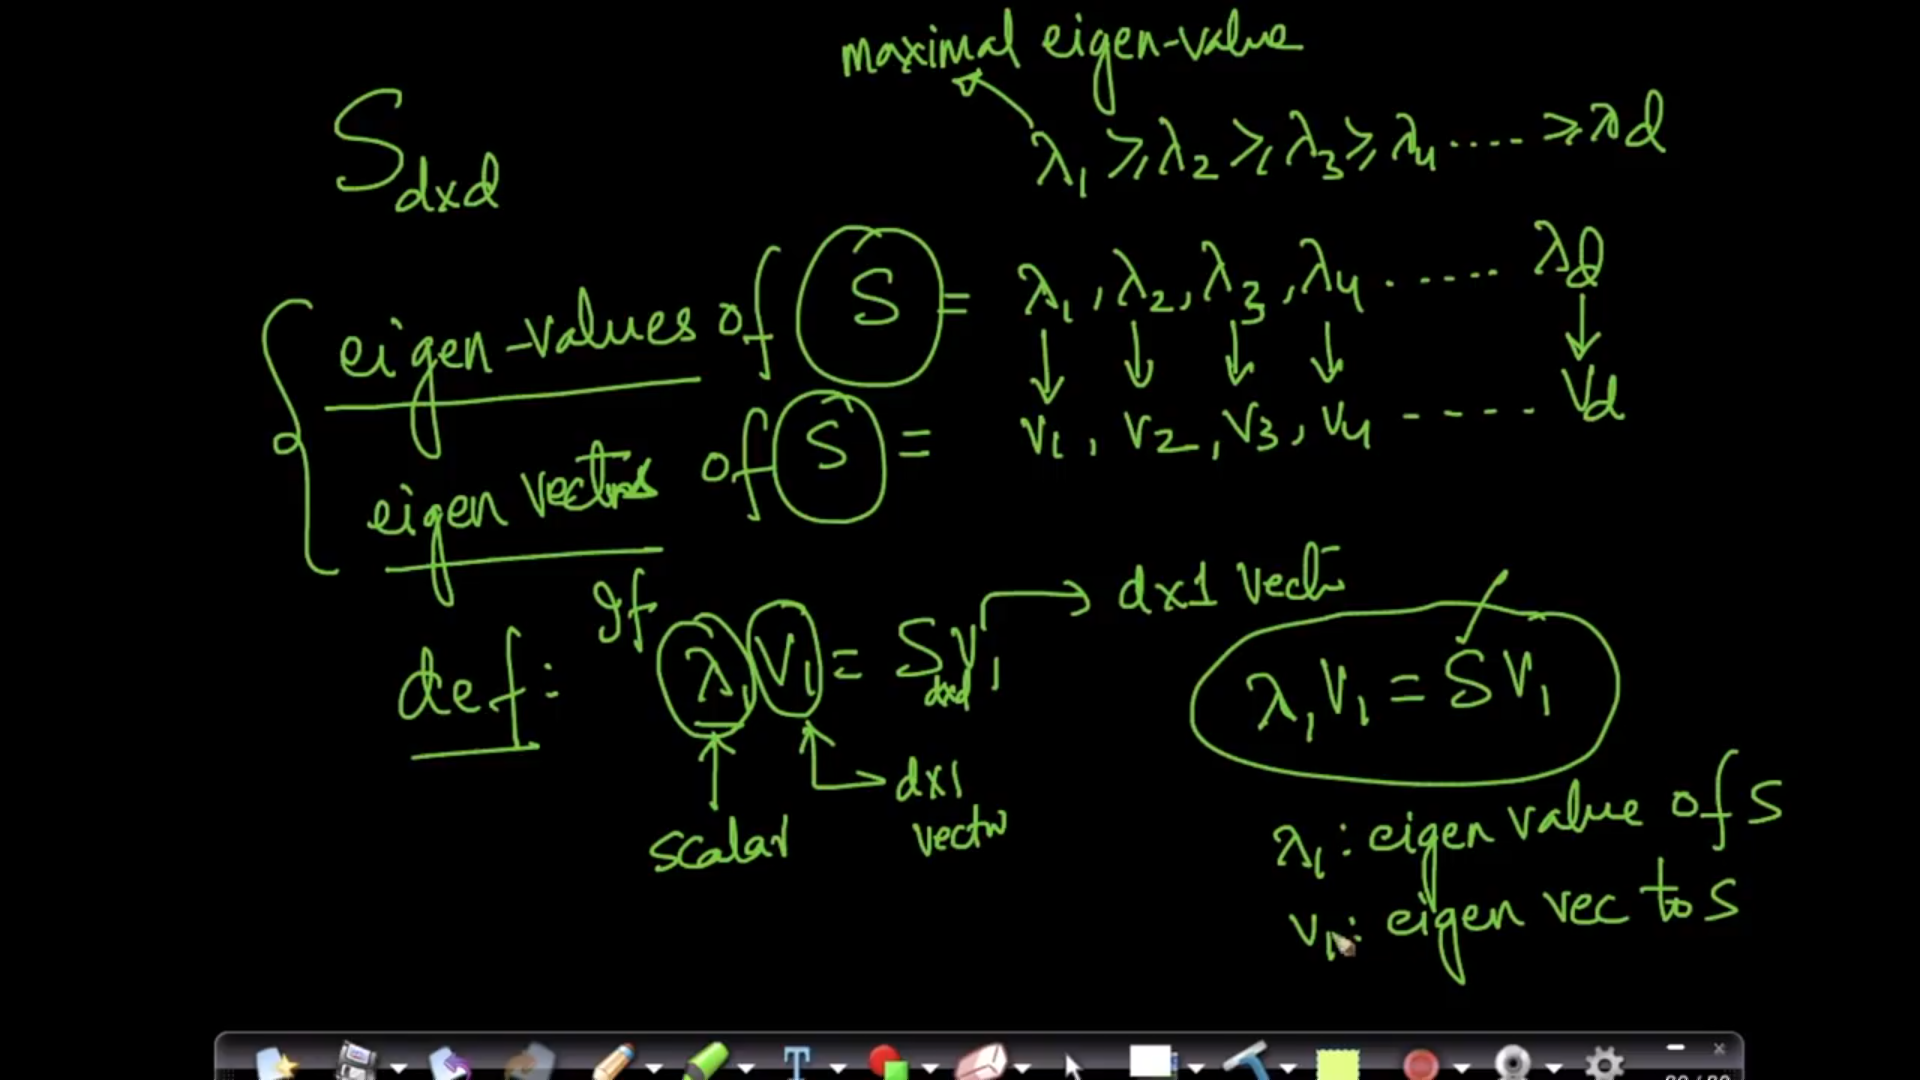 maximal eigen-value
S dxd
λ1 ⩾ λ2 ⩾ λ3 ⩾ λ4 ..... ⩾ λd
eigen-values of S = λ1, λ2, λ3, λ4 ...... λd
eigen vectors of S = v1, v2, v3, v4 ----- vd
def: If λ1 v1 = S dxd v1
dx1 vect
λ1 v1 = S v1
scalar
dx1
vector
λ1: eigen value of S
v1: eigen vec to S
T